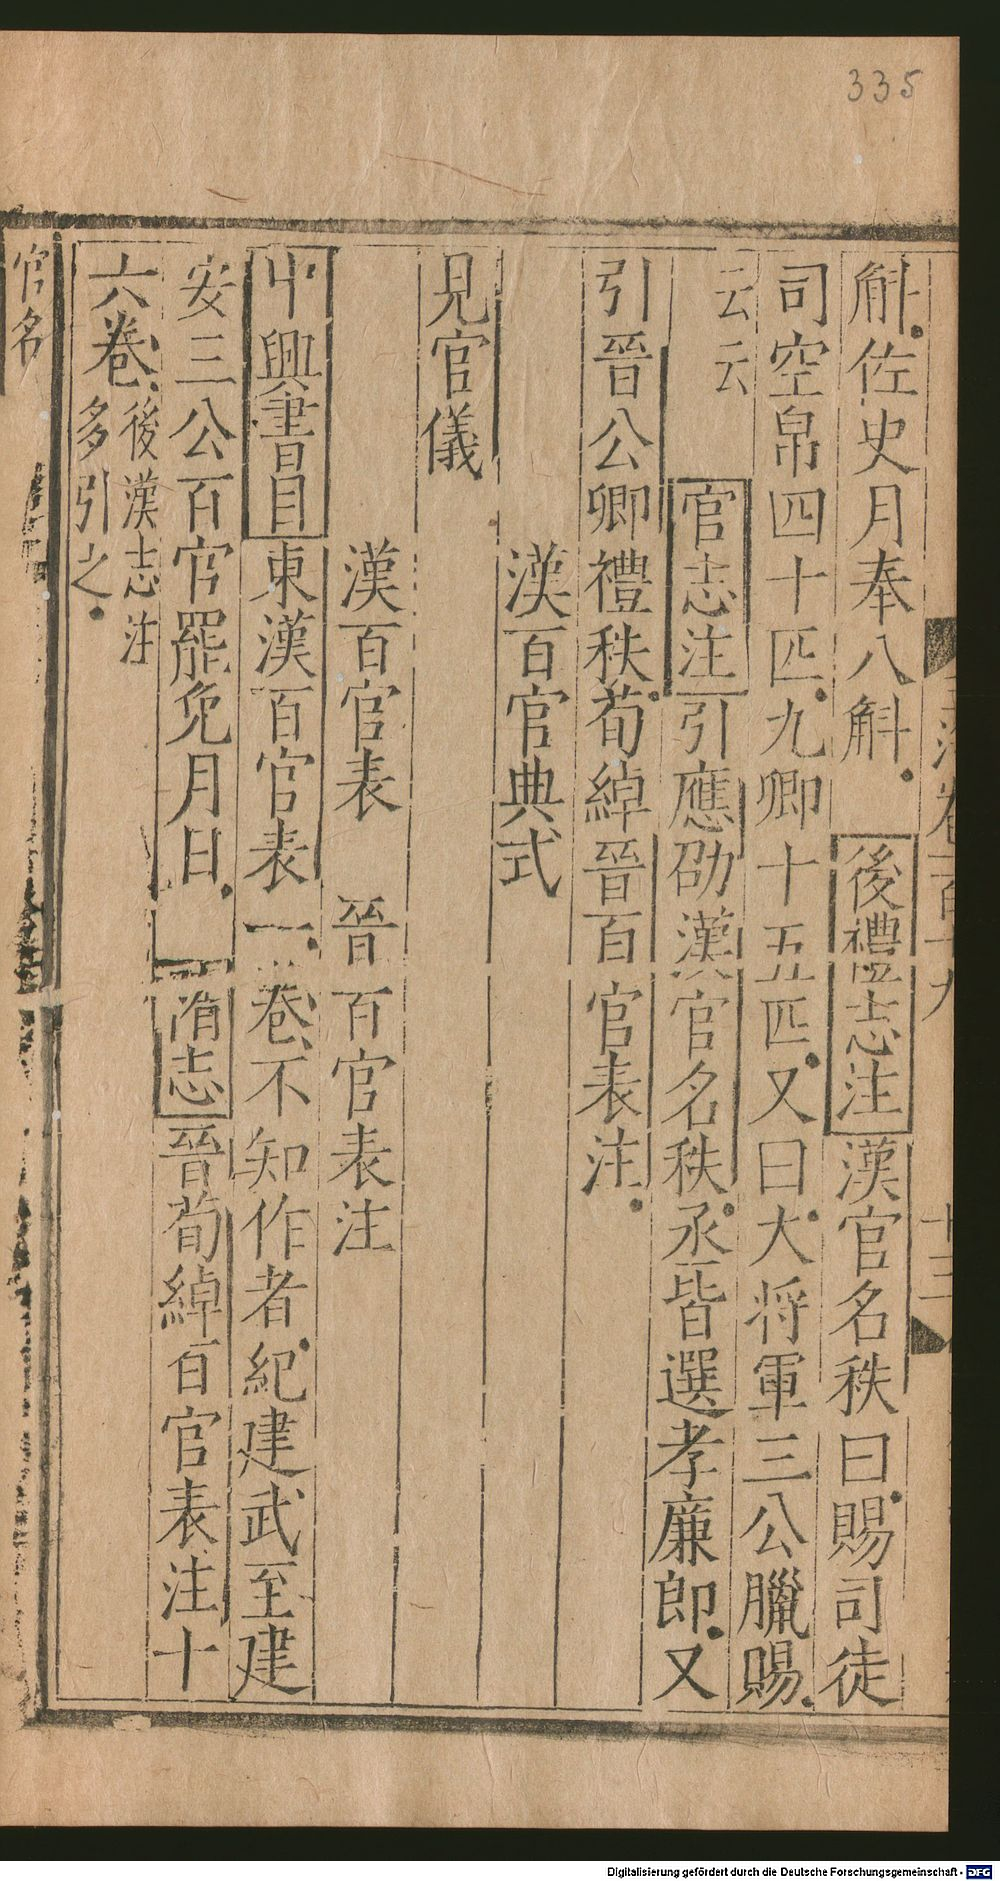 335
斛佐史月奉八斛後禮志注漢官名秩曰賜司徒
司空帛四十匹九卿十五匹又曰大将軍三公臘賜
云云官志注引應劭漢官名秩丞皆選孝廉郎又
引晉公卿禮秩荀綽晉百官表注
漢百官典式
見官儀
漢百官表 晉百官表注
中興書目東漢百官表一卷不知作者紀建武至建
安三公百官罷免月日隋志晉荀綽百官表注十
六卷後漢志注
多引之
官名
Digitalisierung gefördert durch die Deutsche Forschungsgemeinschaft - DFG